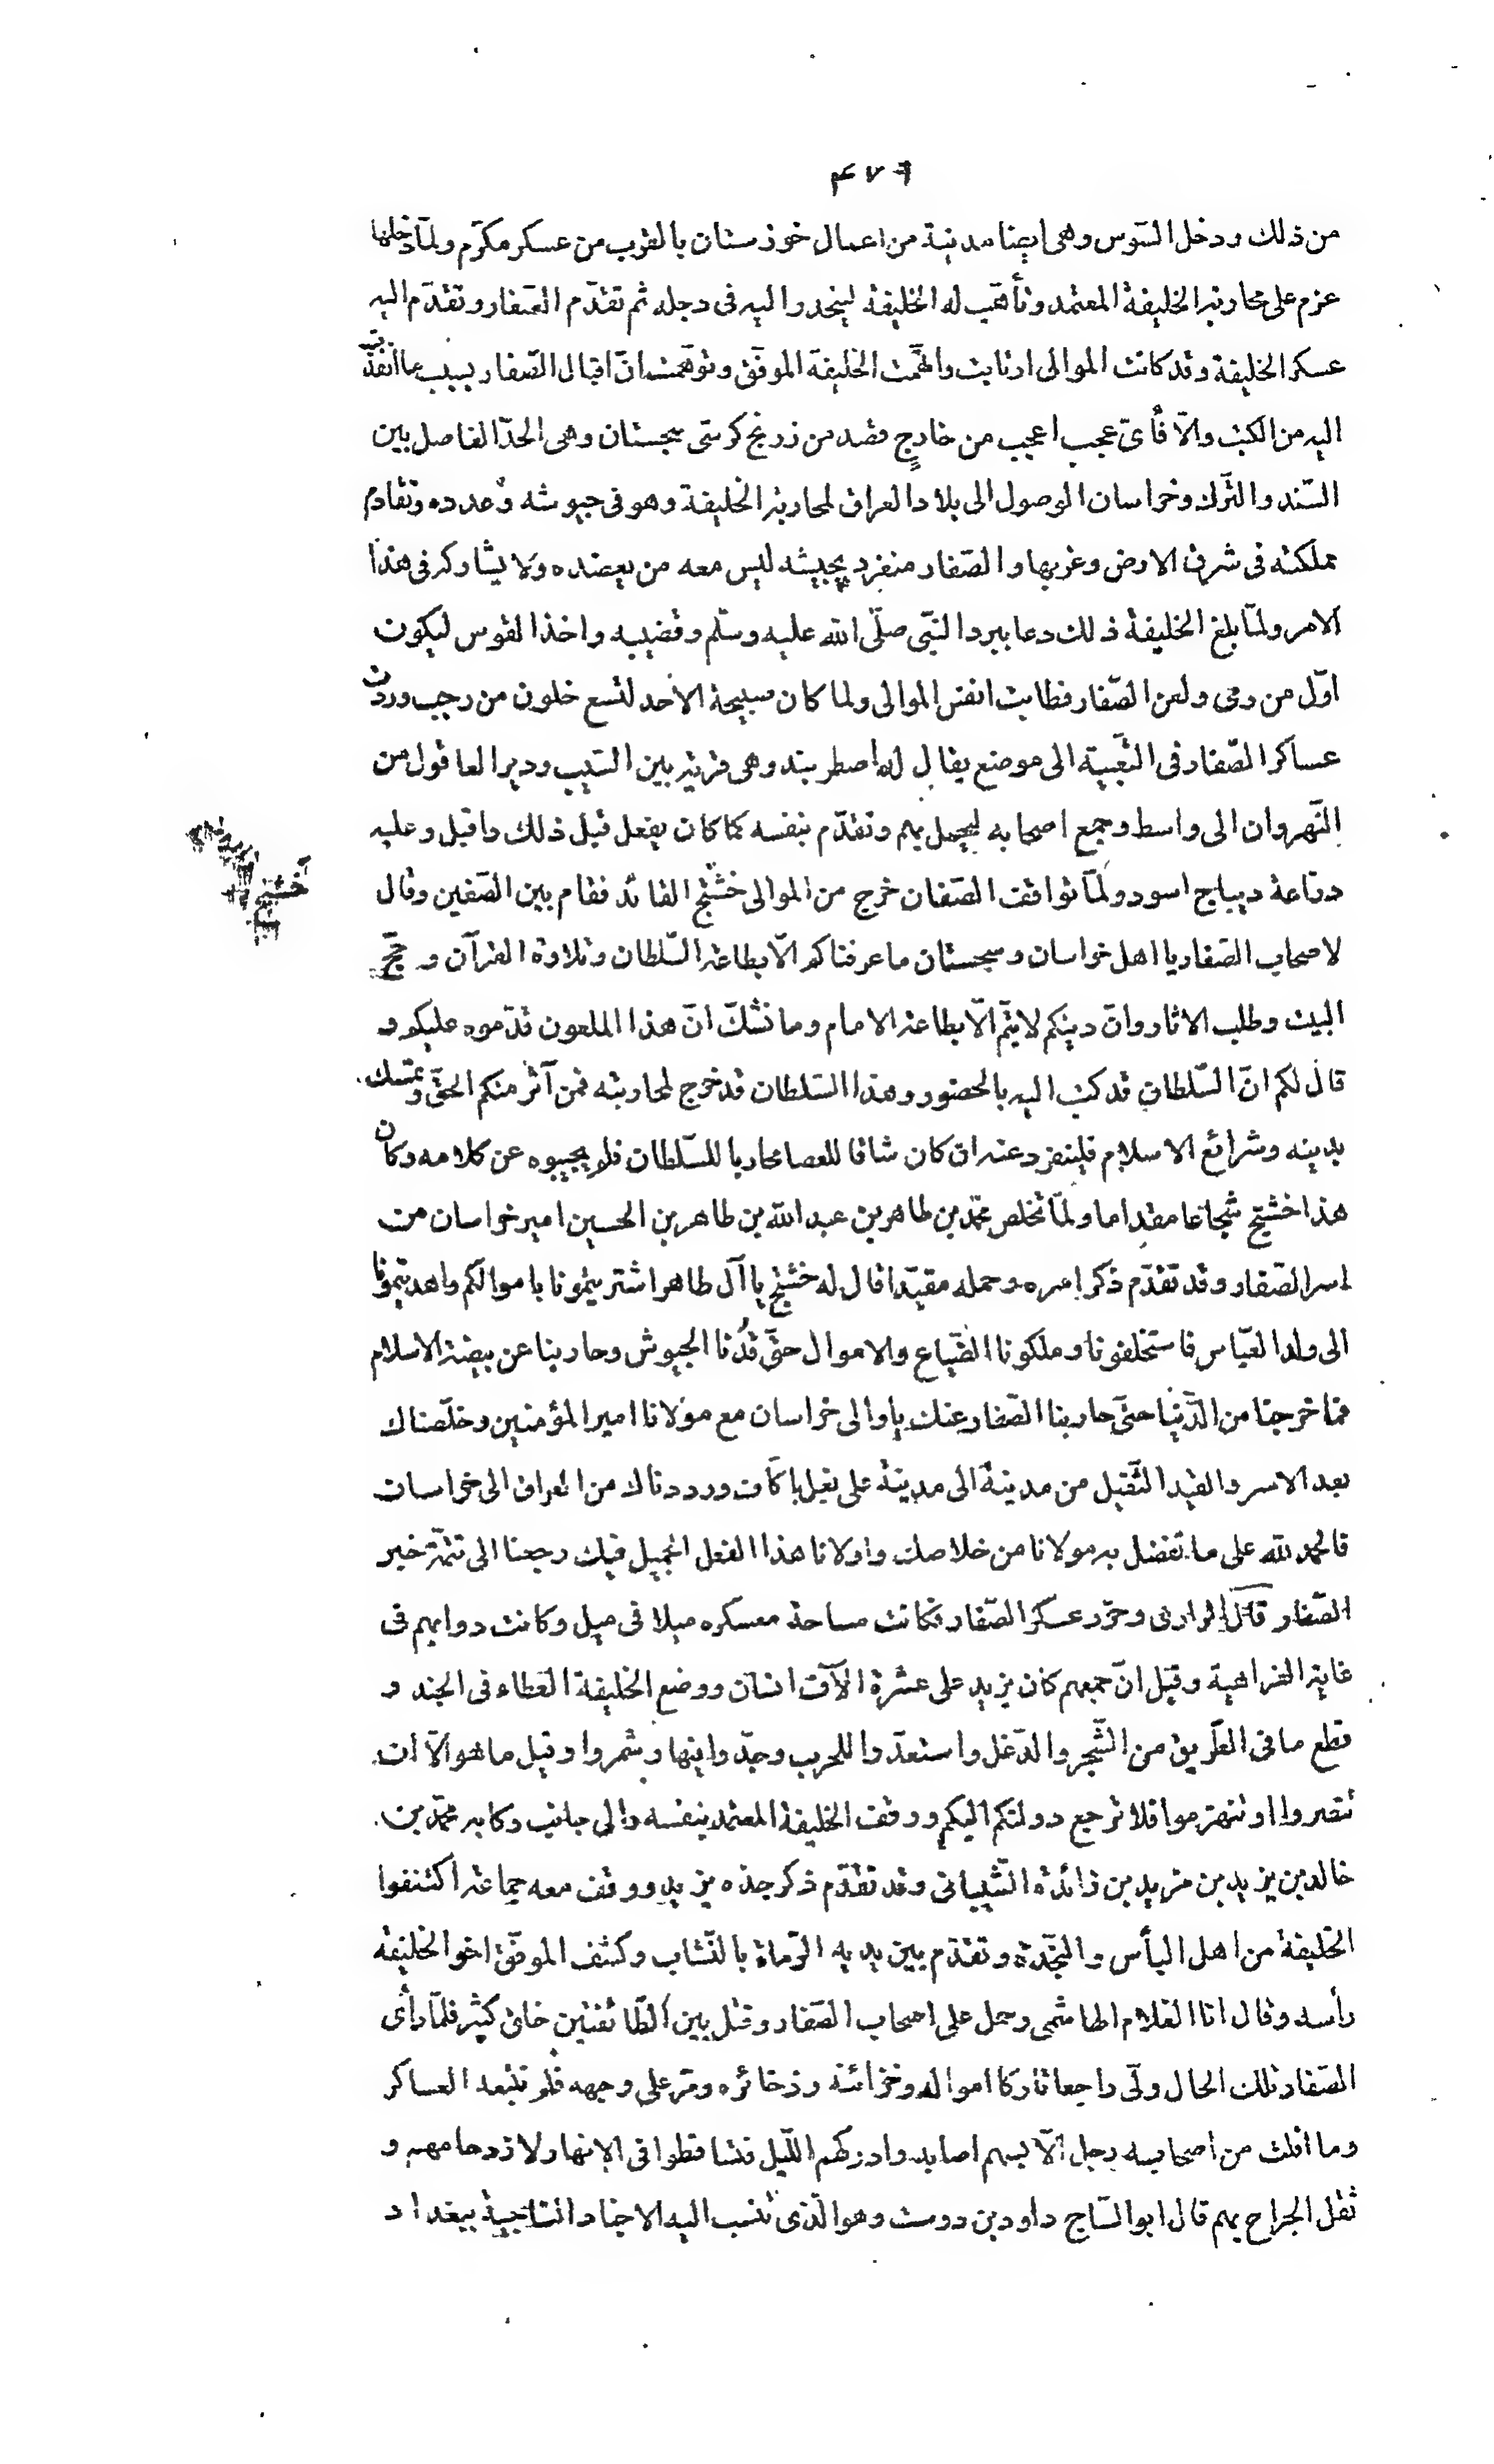 ۴۷۶
من ذلك ودخل السّوس وهى ايضا مدينة من اعمال خوزستان بالقرب من عسكر مكرّم ولمّا دخلها
عزم على محاربة الخليفة المعتمد وتأهّب له الخليفة لينحدر اليه فى دجله ثم تقدّم الصّفار وتقدّم اليه
عسكر الخليفة وقد كانت الموالى ارتابت واتّهمت الخليفة الموفّق وتوهّمت انّ اقبال الصّفار بسبب ما انفذ
اليه من الكتب والّا فأىّ عجب اعجب من خارج قصد من زرنج كرسّى سجستان وهى الحدّ الفاصل بين
السّند والترّك وخراسان الوصول الى بلاد العراق لمحاربة الخليفة وهو فى جيوشه وعدده وتقادم
مملكته فى شرق الارض وغربها والصّفار منفرد بجيشه ليس معه من يعضده ولا يشاركه فى هذا
الامر ولمّا بلغ الخليفة ذلك دعا ببرد النبّى صلّى الله عليه وسلّم وقضيبه واخذ القوس ليكون
اوّل من رمى ولعن الصّفار فطابت انفس الموالى ولما كان صبيحة الأحد لتسع خلون من رجب وردت
عساكر الصّفار فى التّعبية الى موضع يقال له اصطربند وهى قرية بين السّيب ودير العاقول من
النّهروان الى واسط وجمع اصحابه ليحمل بهم وتقدّم بنفسه كما كان يفعل قبل ذلك واقبل وعليه
درّاعة ديباج اسود ولمّا تواقف الصّفان خرج من الموالى خشتج القائد فقام بين الصّفين وقال
لاصحاب الصّفار يا اهل خراسان وسجستان ما عرفناكم الّا بطاعة السّلطان وتلاوة القرآن و حجّ
البيت وطلب الاثار وانّ دينكم لا يتمّ الّا بطاعة الامام وما نشكّ انّ هذا الملعون قد موّه عليكم و
قال لكم انّ السّلطان قد كتب اليه بالحضور وهذا السّلطان قد خرج لمحاربته فمن آثر منكم الحقّ وتمسّك
بدينه وشرائع الاسلام فلينفرد عنه ان كان شاقا للعصا محاربا للسّلطان فلم يجيبوه عن كلامه وكان
هذا خشتج شجاعا مقداما ولمّا تخلص محمّد بن طاهر بن عبد الله بن طاهر بن الحسين امير خراسان من
اسر الصّفار وقد تقدّم ذكر اسره وحمله مقيّدا قال له خشتج يا آل طاهر اشتريتمونا باموالكم واهديتمونا
الى ولد العبّاس فاستخلفونا وملكونا الضّياع والاموال حتّى قدنا الجيوش وحاربنا عن بيضة الاسلام
فما خرجنا من الدّنيا حتّى حاربنا الصّفار عنك يا والى خراسان مع مولانا امير المؤمنين وخلّصناك
بعد الاسر والقيد الثّقيل من مدينة الى مدينة على بغل باكاف ورددناك من العراق الى خراسان
فالحمد لله على ما تفضل به مولانا من خلاصك واولانا هذا الفعل الجميل فيك رجعنا الى تتمّة خبر
الصّفار قال الراوى وحزر عسكر الصّفار فكانت مساحة معسكره ميلا فى ميل وكانت دوابهم فى
غاية الفراهية وقيل انّ جمعهم كان يزيد على عشرة الآف انسان ووضع الخليفة العطاء فى الجند و
قطع ما فى الطّريق من الشّجر والدّغل واستعدّوا للحرب وجدّوا فيها وشمروا وقيل ما هو الّا ان
تنصروا او تنهزموا فلا ترجع دولتكم اليكم ووقف الخليفة المعتمد بنفسه والى جانب ركابه محمّد بن
خالد بن يزيد بن مزيد بن زائدة الشّيبانى وقد تقدّم ذكر جدّه يزيد ووقف معه جماعة اكتنفوا
الخليفة من اهل البأس والنجّدة وتقدّم بين يديه الرّماة بالنّشاب وكشف الموفّق اخو الخليفة
رأسه وقال انا الغلام الهاشمى وحمل على اصحاب الصّفار وقتل بين الطّائفتين خلق كثير فلمّا رأى
الصّفار تلك الحال ولّى راجعا تاركا امواله وخزائنه وذخائره ومرّ على وجهه فلم تتبعه العساكر
وما افلت من اصحابه رجل الّا بسهم اصابه وادركهم اللّيل فتساقطوا فى الانهار لازدحامهم و
ثقل الجراح بهم قال ابو السّاج داود بن دوست وهو الّذى تنسب اليه الاجناد السّاجية ببغداد
خشتج